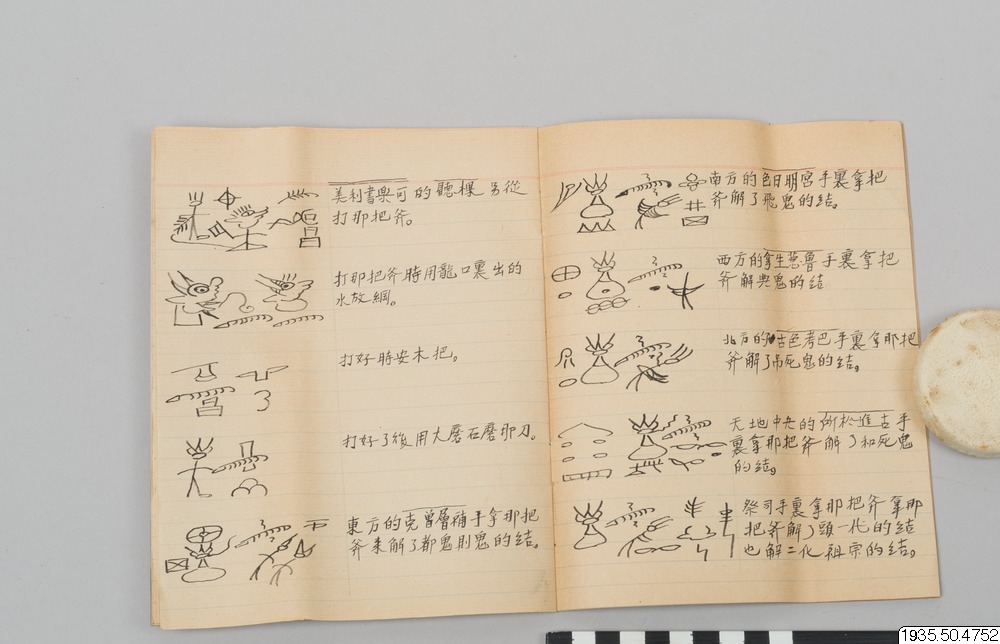 美利書與可的聽棵另從
打那把斧。
打那把斧時用龍口裏出的
水放綱。
打好時安木把。
打好了後用大磨石磨那刀。
東方的克曾層補手拿那把
斧来解了都鬼則鬼的结。
南方的色日明宮手裏拿把
斧解了飛鬼的结。
西方的拿生葱魯手裏拿把
斧解與鬼的结
北方的古色考巴手裏拿那把
斧解了吊死鬼的结。
天地中央的所松進古手
裏拿那把斧解了和死鬼
的结。
祭司手裏拿那把斧拿那
把斧解了頭一代的结
也解二化祖宗的结。
1935.50.4752